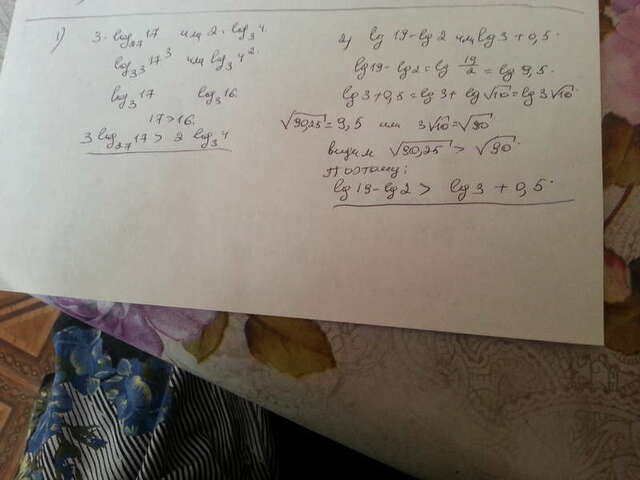 1) 3·log₂₇17 или 2·log₃4.
log₃³17³ или log₃4².
log₃17 log₃16.
17>16.
3log₂₇17 > 2log₃4
2) lg 19-lg 2 или lg 3 + 0,5.
lg19-lg2=lg 19/2 = lg 9,5.
lg3+0,5=lg3+ lg√10=lg3√10.
√90,25=9,5 или 3√10=√90
видим √90,25 > √90.
Поэтому:
lg19-lg2 > lg3 + 0,5.